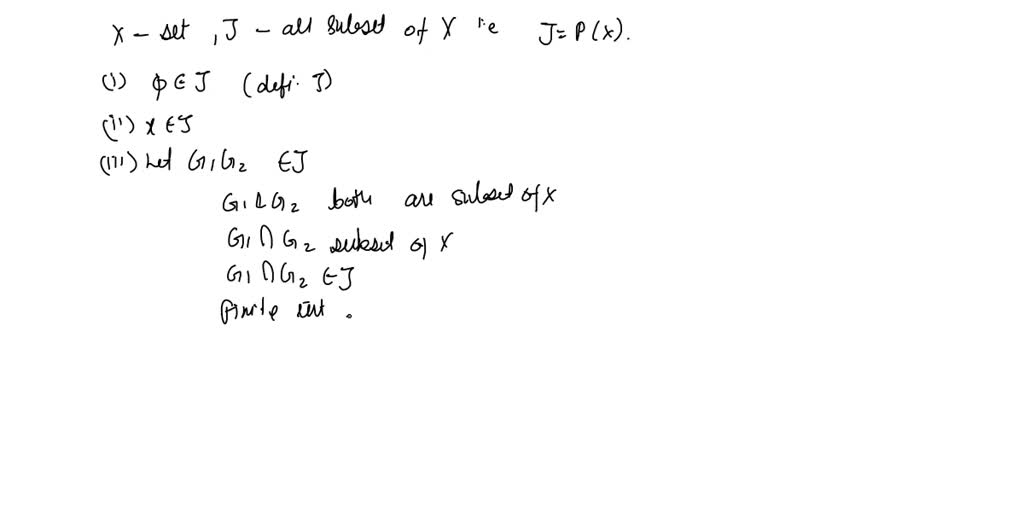 X - set , J - all subset of X i.e J = P(X).
(i) ϕ ∈ J (defi. J)
(ii) X ∈ J
(iii) Let G1 G2 ∈ J
G1 & G2 both are subset of X
G1 ∩ G2 subset of X
G1 ∩ G2 ∈ J
finite int .